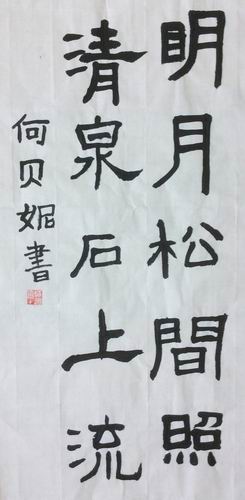 明月松間照
清泉石上流
何贝妮書